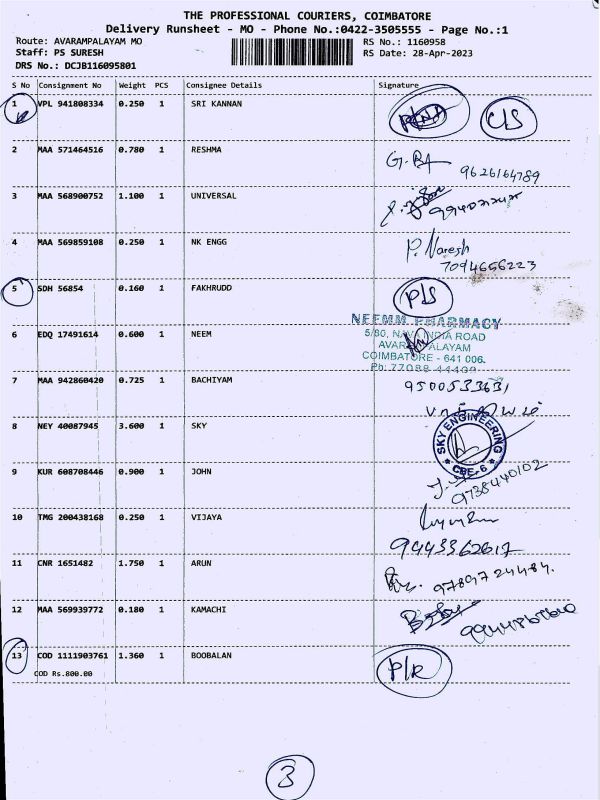 THE PROFESSIONAL COURIERS, COIMBATORE
Delivery Runsheet - MO - Phone No.:0422-3505555 - Page No.:1
Route: AVARAMPALAYAM MO RS No.: 1160958
Staff: PS SURESH RS Date: 28-Apr-2023
DRS No.: DCJB116095801
S No Consignment No Weight PCS Consignee Details Signature
1 VPL 941808334 0.250 1 SRI KANNAN
2 MAA 571464516 0.780 1 RESHMA
9626164789
3 MAA 568900752 1.100 1 UNIVERSAL
4 MAA 569859108 0.250 1 NK ENGG P. Naresh
7094656223
5 SDH 56854 0.160 1 FAKHRUDD P/S
NEEMM PHARMACY
6 EDQ 17491614 0.600 1 NEEM 5/80, NAVA INDIA ROAD
AVARAMPALAYAM
COIMBATORE - 641 006.
Ph: 77088 44400
7 MAA 942860420 0.725 1 BACHIYAM 9500533631
8 NEY 40087945 3.600 1 SKY SKY ENGINEERING
CBE-6
9 KUR 608708446 0.900 1 JOHN
9738440102
10 TMG 200438168 0.250 1 VIJAYA
9443362617
11 CNR 1651482 1.750 1 ARUN
9789724484.
12 MAA 569939772 0.180 1 KAMACHI
13 COD 1111903761 1.360 1 BOOBALAN P/R
COD Rs.800.00
3